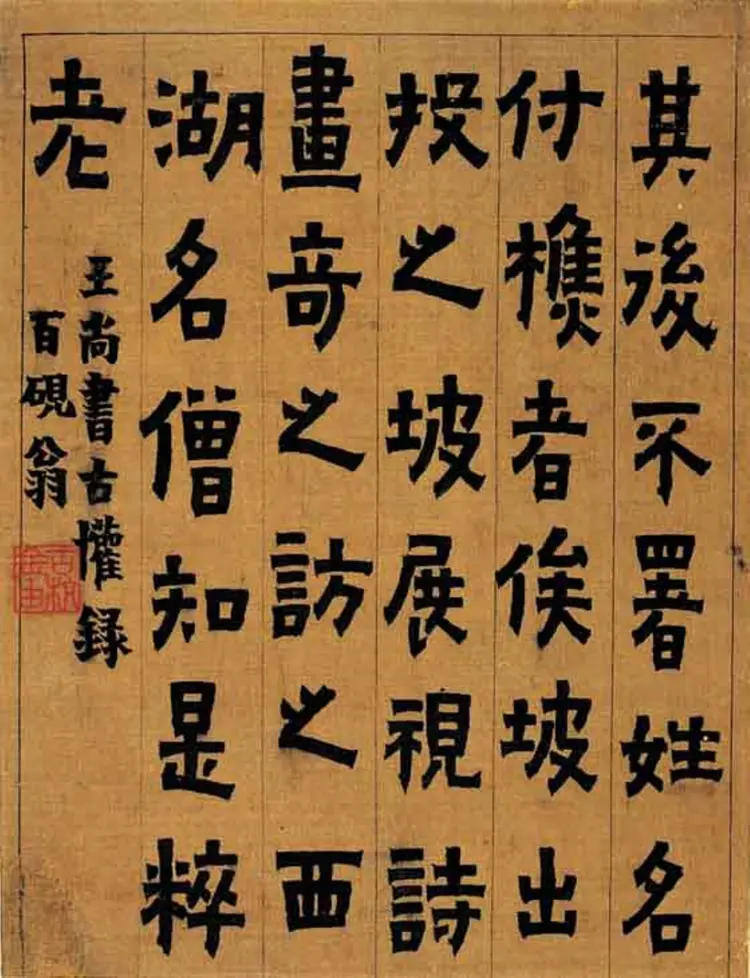 其後不署姓名
付樵者俟坡出
投之坡展視詩
畫奇之訪之西
湖名僧知是粹
老
王尚書古懽錄
百硯翁